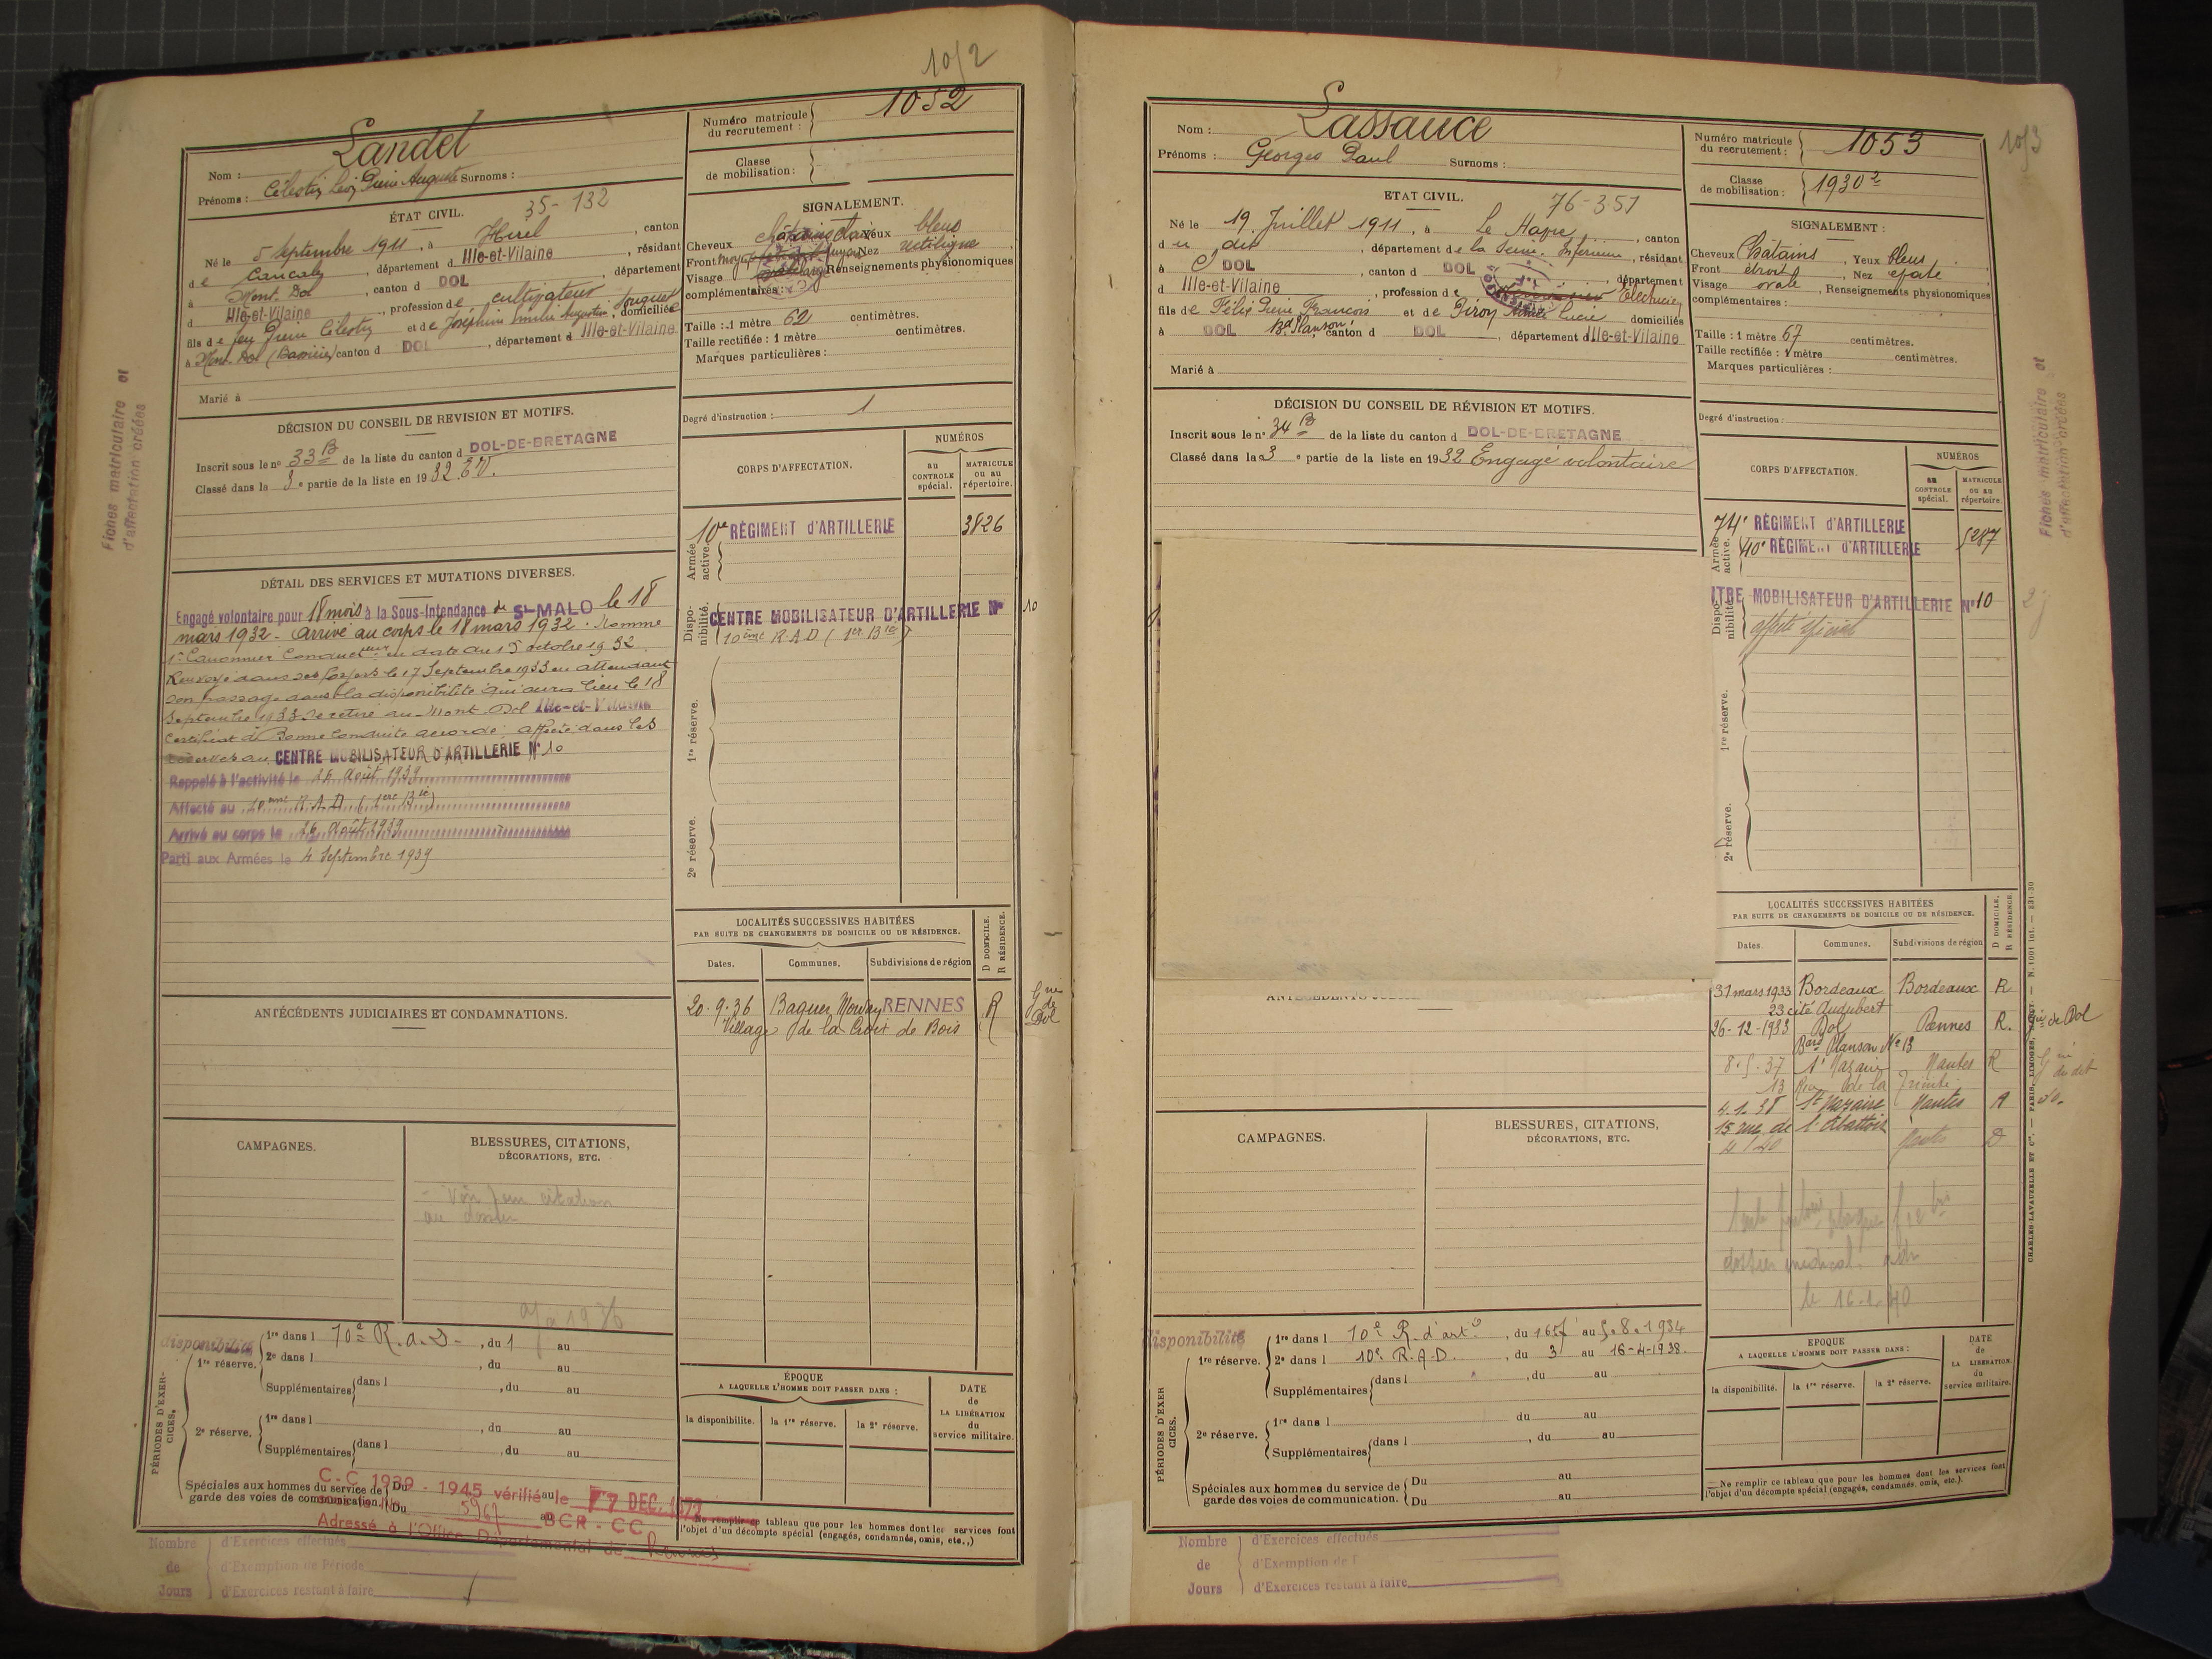 1052
Landel
Nom :
Prénoms : Célestin Léon Pierre Auguste Surnoms :
Numéro matricule du recrutement : 1052
Classe de mobilisation :
ÉTAT CIVIL.
35-132
Né le 5 Septembre 1911, à Hirel, canton
de Cancale, département d Ille-et-Vilaine, résidant
à Mont-Dol, canton d DOL, département
d Ille-et-Vilaine, profession de cultivateur
fils de feu Pierre Célestin et de Joséphine Emilie Augustine Jouquet, domiciliée
à Mont-Dol, canton d DOL, département d Ille-et-Vilaine
Marié à
SIGNALEMENT.
Cheveux châtains clair Yeux bleus
Front moyen Nez rectiligne
Visage Renseignements physionomiques
complémentaires :
Taille : 1 mètre 62 centimètres.
Taille rectifiée : 1 mètre centimètres.
Marques particulières :
Degré d'instruction : 1
DÉCISION DU CONSEIL DE REVISION ET MOTIFS.
Inscrit sous le nº 33 B de la liste du canton d DOL-DE-BRETAGNE
Classé dans la 3e partie de la liste en 1932. E.V.
Fiches matriculaire et
d'affectation créées
CORPS D'AFFECTATION.
NUMÉROS
AU CONTROLE spécial.
MATRICULE OU AU répertoire.
Armée active.
10e RÉGIMENT d'ARTILLERIE 3826
Disponibilité.
CENTRE MOBILISATEUR D'ARTILLERIE Nº 10
10ème R.A.D (1er Bie)
1re réserve.
2e réserve.
DÉTAIL DES SERVICES ET MUTATIONS DIVERSES.
Engagé volontaire pour 18 mois à la Sous-Intendance de St-MALO le 18
mars 1932 - arrivé au corps le 18 mars 1932. Nommé
1er Canonnier Conducteur en date du 15 octobre 1932.
Renvoyé dans ses foyers le 17 Septembre 1933 en attendant
son passage dans la disponibilité qui aura lieu le 18
Septembre 1933. Se retire au Mont-Dol Ille-et-Vilaine
Certificat de Bonne Conduite accordé. affecté dans les
réserves au CENTRE MOBILISATEUR D'ARTILLERIE Nº 10
Rappelé à l'activité le 26 Août 1939
Affecté au 10ème R.A.D (1ere Bie)
Arrivé au corps le 26 Août 1939
Parti aux Armées le 4 Septembre 1939
LOCALITÉS SUCCESSIVES HABITÉES
PAR SUITE DE CHANGEMENTS DE DOMICILE OU DE RÉSIDENCE.
Dates. Communes. Subdivisions de région
D DOMICILE.
R RÉSIDENCE.
20-9-36 Baguer Morvan RENNES R
Village de la Croix de Bois
de Dol
ANTÉCÉDENTS JUDICIAIRES ET CONDAMNATIONS.
CAMPAGNES.
BLESSURES, CITATIONS,
DÉCORATIONS, ETC.
citation
au dossier
1936
PÉRIODES D'EXERCICES.
disponibilité
1re réserve.
1re dans l 10e R.a.D-, du 1 au
2e dans l , du au
Supplémentaires dans l , du au
2e réserve.
1re dans l , du au
Supplémentaires dans l , du au
Spéciales aux hommes du service de garde des voies de communication. Du au
Du au
C.C 1939 - 1945 vérifié le 7 DEC.
5967 BCR - CC
Adressé à l'Office Départemental de Rennes
Nombre de Jours
d'Exercices effectués
d'Exemption de Période
d'Exercices restant à faire
ÉPOQUE
A LAQUELLE L'HOMME DOIT PASSER DANS :
la disponibilité. la 1re réserve. la 2e réserve.
DATE de LA LIBÉRATION du service militaire.
Ne remplir ce tableau que pour les hommes dont les services font
l'objet d'un décompte spécial (engagés, condamnés, omis, etc.,)
1053
Nom : Lassauce
Prénoms : Georges Paul Surnoms :
Numéro matricule du recrutement : 1053
Classe de mobilisation : 1930 2
ETAT CIVIL.
76-351
Né le 19 Juillet 1911, à Le Havre, canton
du dit, département de la Seine Inférieure, résidant
à DOL, canton d DOL, département
d Ille-et-Vilaine, profession de Electricien
fils de Félix Pierre François et de Piron Lucie domiciliés
à DOL Bd Planson, canton d DOL, département d Ille-et-Vilaine
Marié à
SIGNALEMENT :
Cheveux Châtains, Yeux bleus
Front étroit, Nez
Visage ovale, Renseignements physionomiques
complémentaires :
Taille : 1 mètre 67 centimètres.
Taille rectifiée : 1 mètre centimètres.
Marques particulières :
Degré d'instruction :
DÉCISION DU CONSEIL DE RÉVISION ET MOTIFS.
Inscrit sous le nº 34 B de la liste du canton d DOL-DE-BRETAGNE
Classé dans la 3e partie de la liste en 1932 Engagé volontaire
Fiches matriculaire et
d'affectation créées
CORPS D'AFFECTATION.
NUMÉROS
AU CONTROLE spécial.
MATRICULE OU AU répertoire.
Armée active.
74e RÉGIMENT d'ARTILLERIE
40e RÉGIMENT d'ARTILLERIE 5287
Disponibilité
TRE MOBILISATEUR D'ARTILLERIE Nº 10
affecté spécial
1re réserve.
2e réserve.
LOCALITÉS SUCCESSIVES HABITÉES
PAR SUITE DE CHANGEMENTS DE DOMICILE OU DE RÉSIDENCE.
Dates. Communes. Subdivisions de région
D DOMICILE.
R RÉSIDENCE.
31 mars 1933 Bordeaux Bordeaux R
23 cité Audubert
26-12-1933 Dol Rennes R.
Bard Planson Nº 13
8.5.37 St Nazaire Nantes R
13 Rue de la Trinité
4.1.38 St Nazaire Nantes R
15 rue de l'Abattoir
D
de Dol
du dit
do.
dossier médical.
le 16-1-40
CAMPAGNES.
BLESSURES, CITATIONS,
DÉCORATIONS, ETC.
PÉRIODES D'EXERCICES.
disponibilité
1re réserve.
1re dans l 10e R. d'artie, du 16 au 5.8.1934
2e dans l 10e R.A.D., du 3 au 16-4-1938.
Supplémentaires dans l , du au
2e réserve.
1re dans l du au
Supplémentaires dans l , du au
Spéciales aux hommes du service de garde des voies de communication. Du au
Du au
Nombre de Jours
d'Exercices effectués
d'Exemption de
d'Exercices restant à faire
EPOQUE
A LAQUELLE L'HOMME DOIT PASSER DANS :
la disponibilité. la 1re réserve. la 2e réserve.
DATE de LA LIBÉRATION du service militaire.
Ne remplir ce tableau que pour les hommes dont les services font
l'objet d'un décompte spécial (engagés, condamnés, omis, etc.).